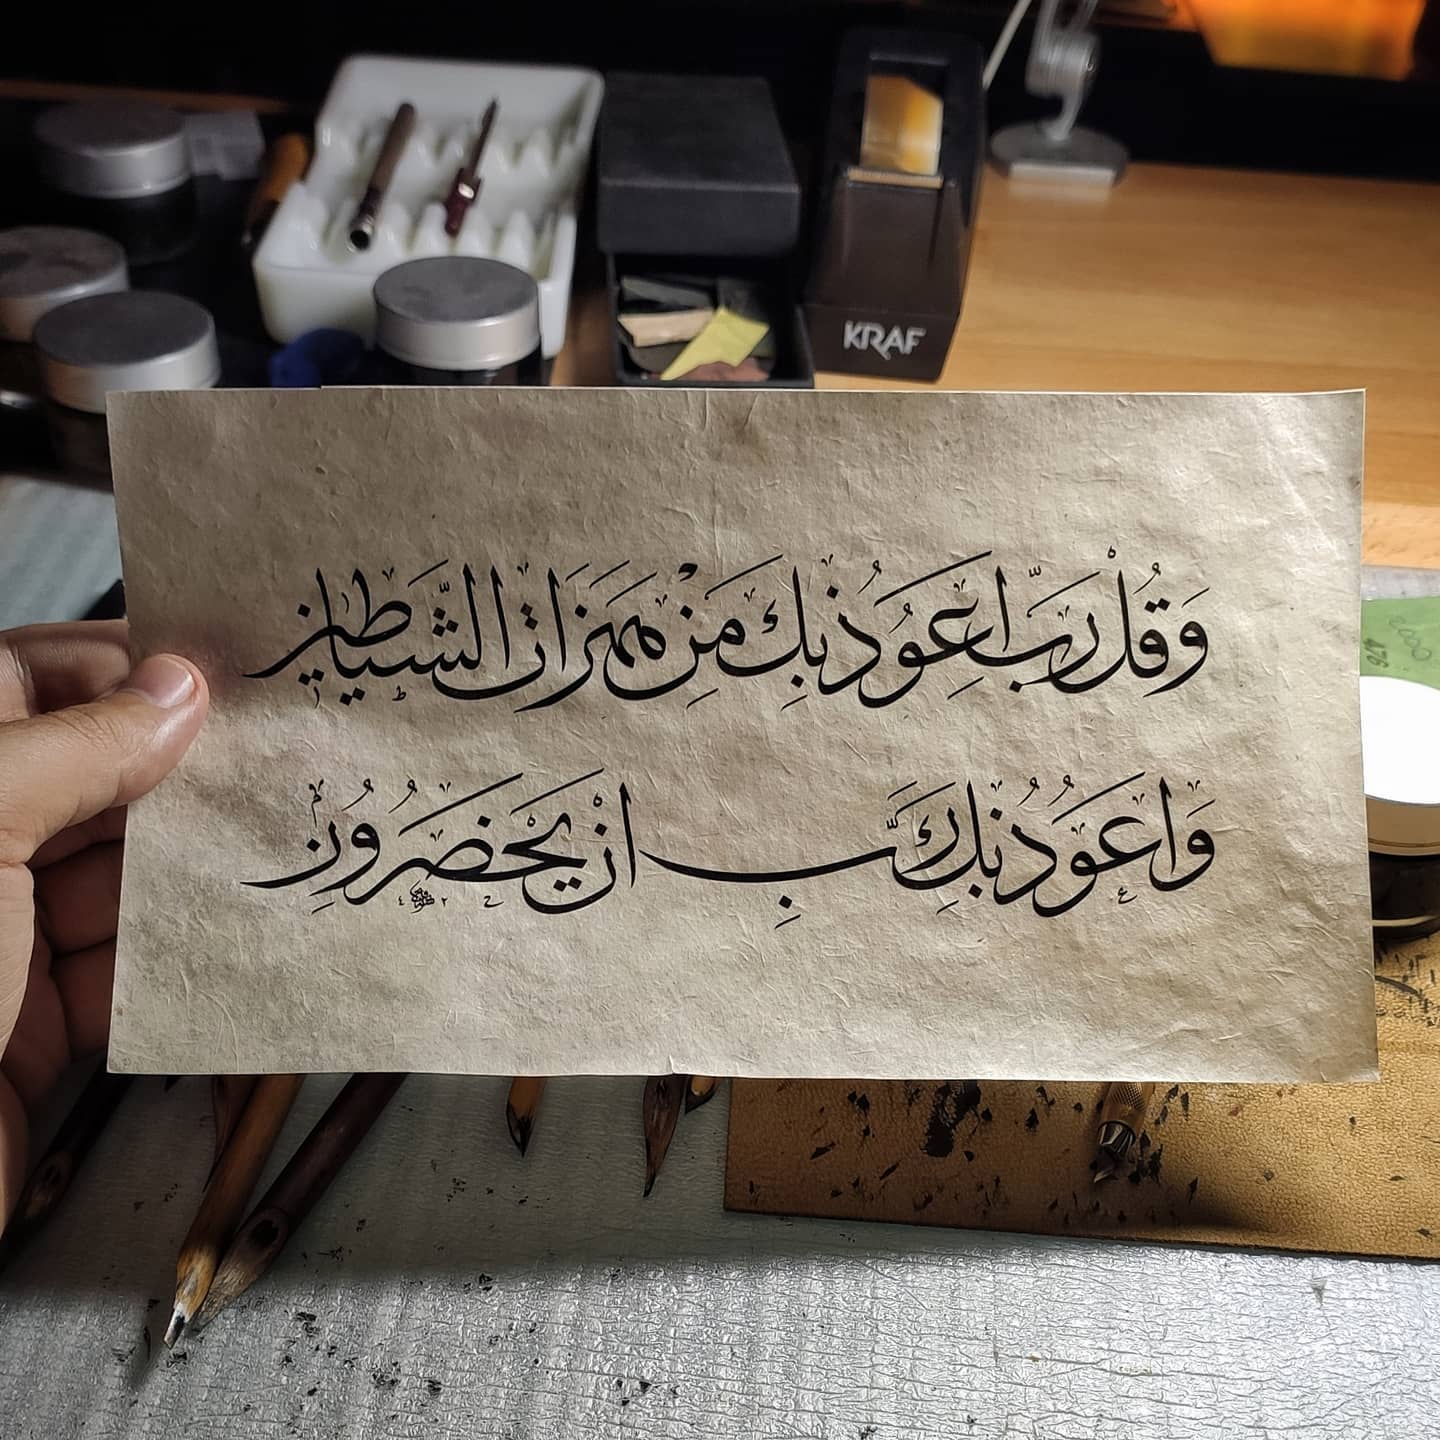 KRAF
وَقُلْ رَبِّ اَعُوذُ بِكَ مِنْ هَمَزَاتِ الشَّيَاطِينِ
وَاَعُوذُ بِكَ رَبِّ اَنْ يَحْضُرُونِ